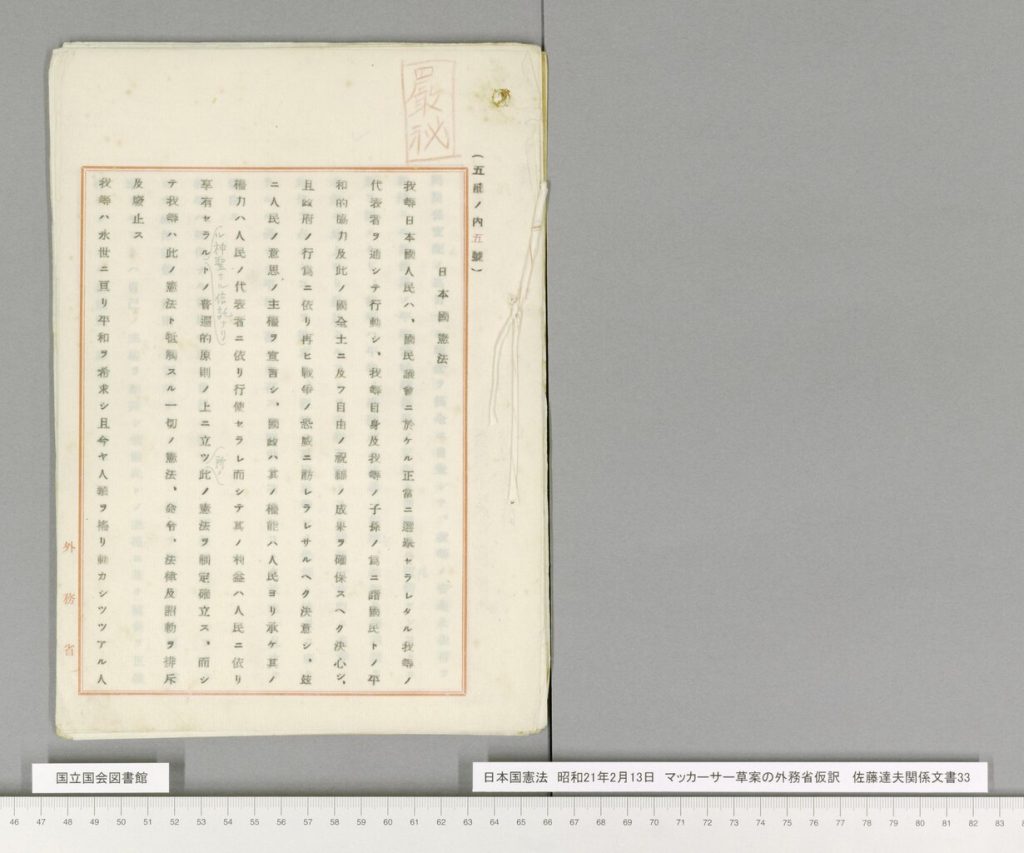 嚴祕
(五部ノ内五號)
日本國憲法
我等日本國人民ハ、國民議會ニ於ケル正當ニ選擧セラレタル我等ノ
代表者ヲ通シテ行動シ、我等自身及我等ノ子孫ノ爲ニ諸國民トノ平
和的協力及此ノ國全土ニ及フ自由ノ祝福ノ成果ヲ確保スヘク決心シ、
且政府ノ行爲ニ依リ再ヒ戰爭ノ恐威ニ訪レラレサルヘク決意シ、玆
ニ人民ノ意思ノ主權ヲ宣言シ、國政ハ其ノ權能ハ人民ヨリ承ケ其ノ
權力ハ人民ノ代表者ニ依リ行使セラレ而シテ其ノ利益ハ人民ニ依リ
ル神聖ナル信託ナリ
享有セラルトノ普遍的原則ノ上ニ立ツ此ノ憲法ヲ制定確立ス、而シ
テ我等ハ此ノ憲法ト牴觸スル一切ノ憲法、命令、法律及詔勅ヲ排斥
及廢止ス
我等ハ永世ニ亘リ平和ヲ希求シ且今ヤ人類ヲ搖リ動カシツツアル人
外務省
国立国会図書館
日本国憲法 昭和21年2月13日 マッカーサー草案の外務省仮訳 佐藤達夫関係文書33
46 47 48 49 50 51 52 53 54 55 56 57 58 59 60 61 62 63 64 65 66 67 68 69 70 71 72 73 74 75 76 77 78 79 80 81 82 83